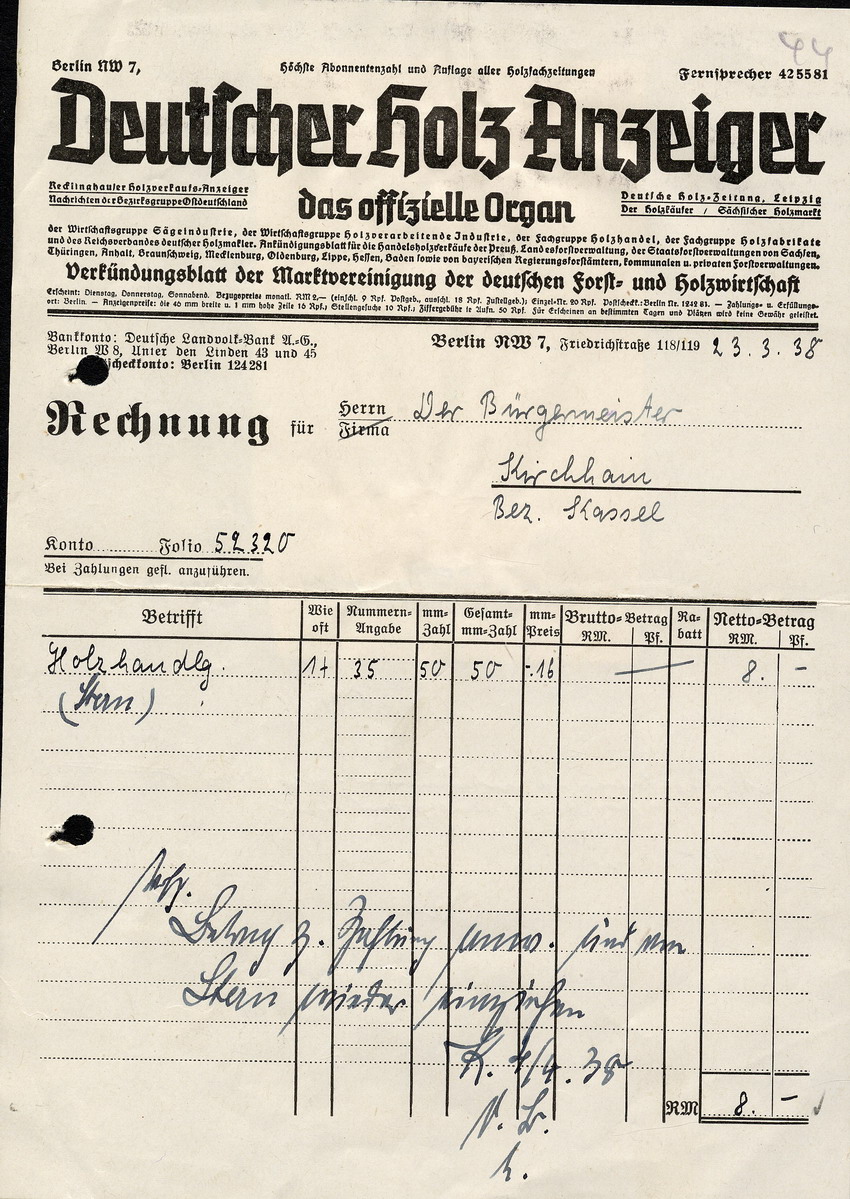 44
Berlin NW 7,
Höchste Abonnentenzahl und Auflage aller Holzfachzeitungen
Fernsprecher 42 55 81
Deutscher Holz Anzeiger
Recklinghauser Holzverkaufs-Anzeiger
Nachrichten der Bezirksgruppe Ostdeutschland
das offizielle Organ
Deutsche Holz-Zeitung, Leipzig
Der Holzkäufer / Sächsischer Holzmarkt
der Wirtschaftsgruppe Sägeindustrie, der Wirtschaftsgruppe Holzverarbeitende Industrie, der Fachgruppe Holzhandel, der Fachgruppe Holzfabrikate
und des Reichsverbandes deutscher Holzmakler. Ankündigungsblatt für die Handelsholzverkäufe der Preuß. Landesforstverwaltung, der Staatsforstverwaltungen von Sachsen,
Thüringen, Anhalt, Braunschweig, Mecklenburg, Oldenburg, Lippe, Hessen, Baden sowie von bayerischen Regierungsforstämtern, kommunalen u. privaten Forstverwaltungen.
Verkündungsblatt der Marktvereinigung der deutschen Forst- und Holzwirtschaft
Erscheint: Dienstag, Donnerstag, Sonnabend. Bezugspreis: monatl. RM 2,— (einschl. 9 Rpf. Postgeb., ausschl. 18 Rpf. Zustellgeb.); Einzel-Nr. 20 Rpf. Postscheck.: Berlin Nr. 1242 81. — Zahlungs- u. Erfüllungs-
ort: Berlin. — Anzeigenpreise: die 46 mm breite u. 1 mm hohe Zeile 16 Rpf.; Stellengesuche 10 Rpf.; Ziffergebühr je Aufn. 50 Rpf. Für Erscheinen an bestimmten Tagen und Plätzen wird keine Gewähr geleistet.
Bankkonto: Deutsche Landvolk-Bank A.-G.,
Berlin W 8, Unter den Linden 43 und 45
scheckkonto: Berlin 124 281
Berlin NW 7, Friedrichstraße 118/119 23.3.38
Rechnung für Herrn
Firma
Der Bürgermeister
Kirchhain
Bez. Kassel
Konto Folio 52320
Bei Zahlungen gefl. anzuführen.
Betrifft Wie oft Nummern-Angabe mm-Zahl Gesamt-mm-Zahl mm-Preis Brutto-Betrag RM. Pf. Rabatt Netto-Betrag RM. Pf.
Holzhandlg. 1+ 35 50 50 -.16 — 8. -
(Stern)
Betrag z. Zahlung anw. und von
Stern wieder einziehen
K. 4/4. 38
V. B.
RM 8. -